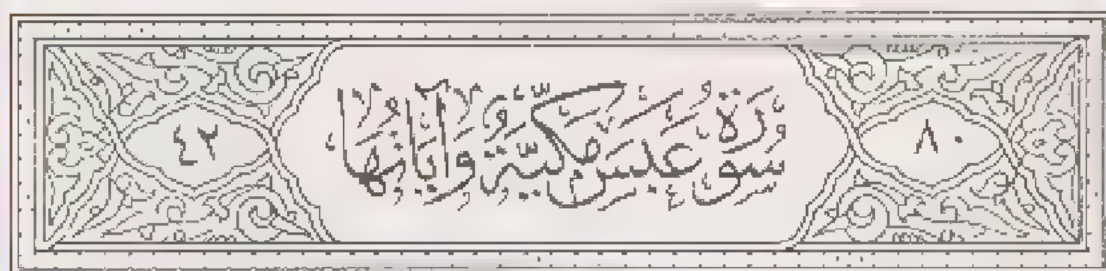 ٨٠ سُورَةُ عَبَسَ مَكِّيَّةٌ وَآيَاتُهَا ٤٢